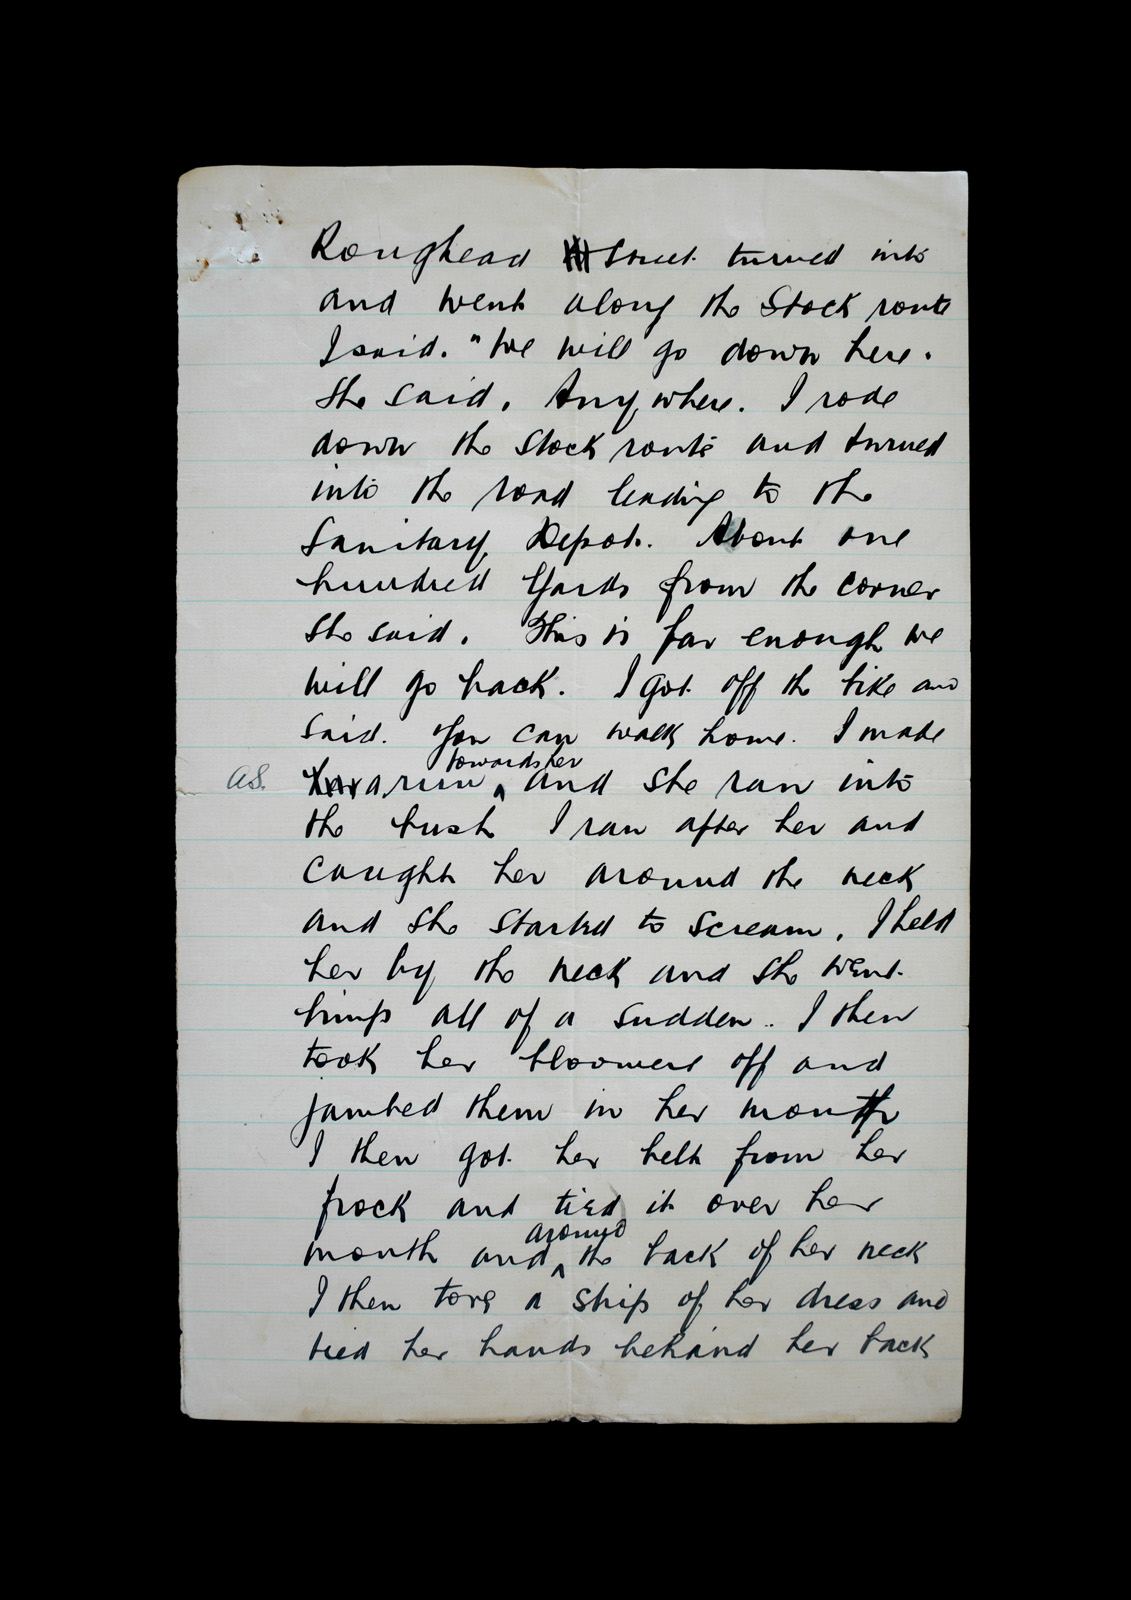 Roughead Street turned into
and went along the Stock route
I said. "We will go down here.
She said, Anywhere. I rode
down the Stock route and turned
into the road leading to the
Sanitary Depot. About one
hundred Yards from the corner
She said. This is far enough we
will go back. I got off the bike and
said. You can walk home. I made
towards her
A.S. a run ^ and she ran into
the bush I ran after her and
caught her around the neck
and she started to scream, I held
her by the neck and she went
limp all of a sudden. I then
took her bloomers off and
jambed them in her mouth
I then got her belt from her
frock and tied it over her
around
mouth and ^ the back of her neck
I then tore a strip of her dress and
tied her hands behind her back